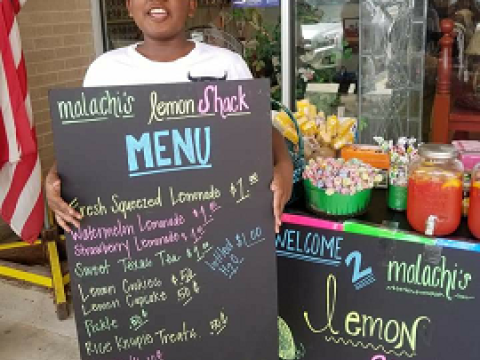 malachi's lemon Shack
MENU
Fresh Squeezed Lemonade $1.00
Watermelon Lemonade $1.00
Strawberry Lemonade $1.00
Sweet Texas Tea $1.00
Bottled $1.00
H2O
Lemon Cookies .50
Lemon Cupcake .50
Pickle .50
Rice Krispie Treats .50
WELCOME 2 malachi's
lemon